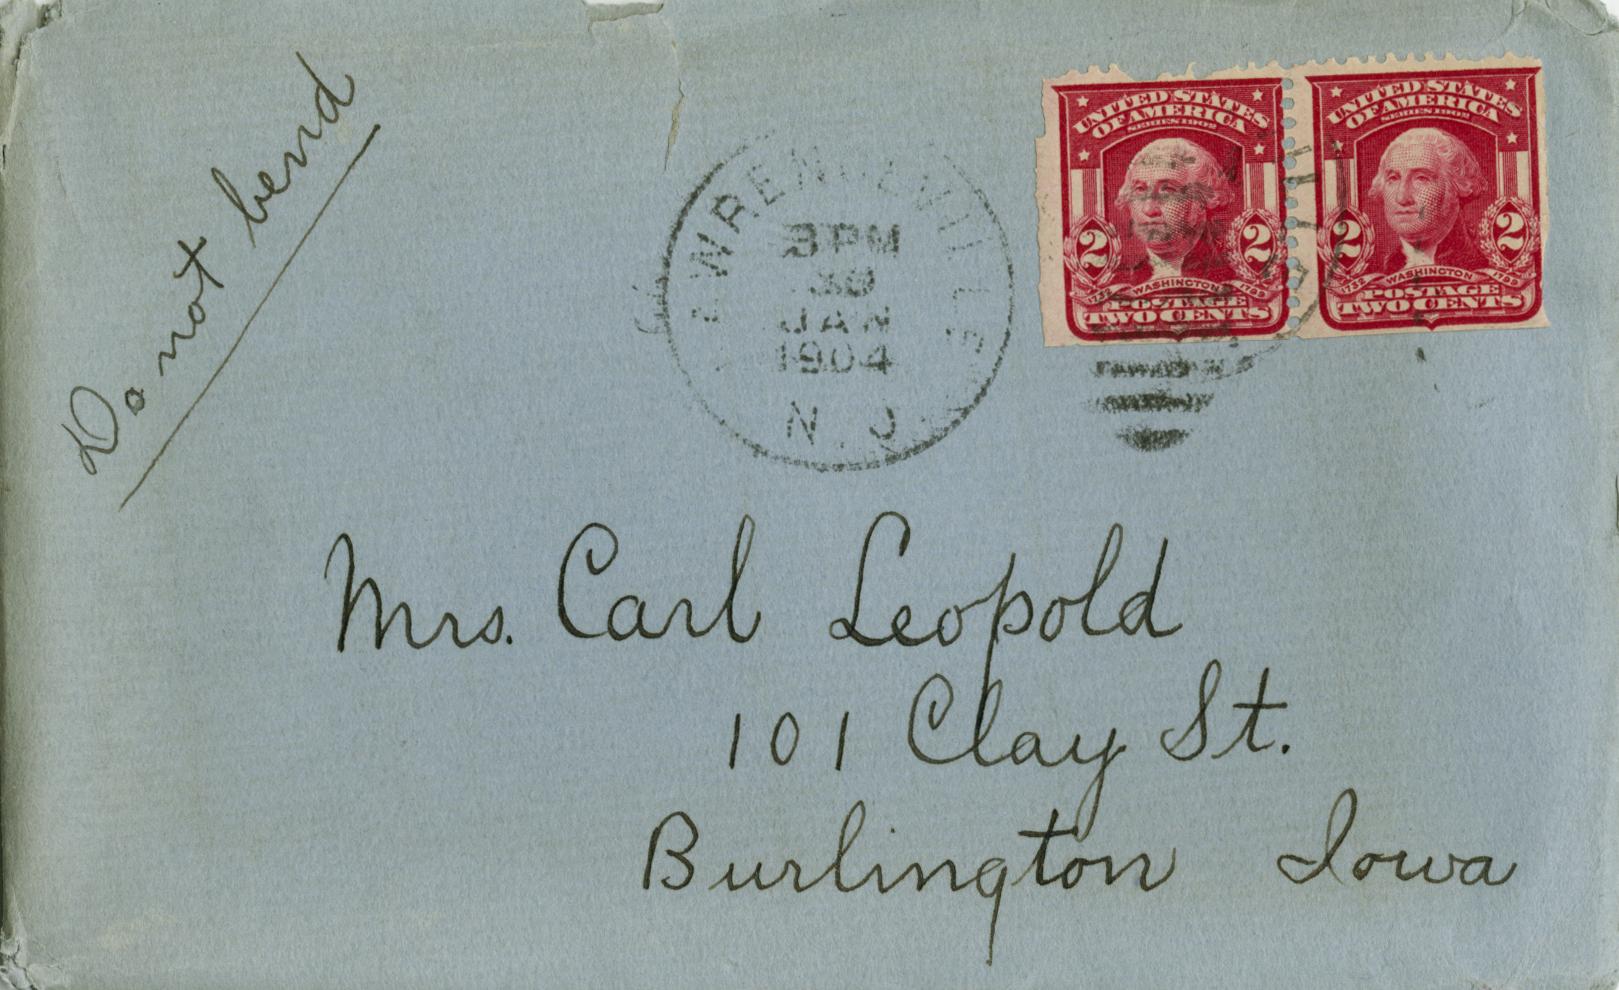 Do not bend
LAWRENCEVILLE
3 PM
30
JAN
1904
N.J.
UNITED STATES
OF AMERICA
SERIES 1902
2 2
1732 WASHINGTON 1799
POSTAGE
TWO CENTS
UNITED STATES
OF AMERICA
SERIES 1902
2 2
1732 WASHINGTON 1799
POSTAGE
TWO CENTS
Mrs. Carl Leopold
101 Clay St.
Burlington Iowa